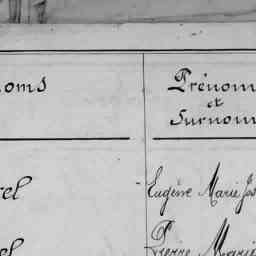 oms
Prénom
et
Surnom
rel
Eugène Marie Jos
el
Pierre Marie